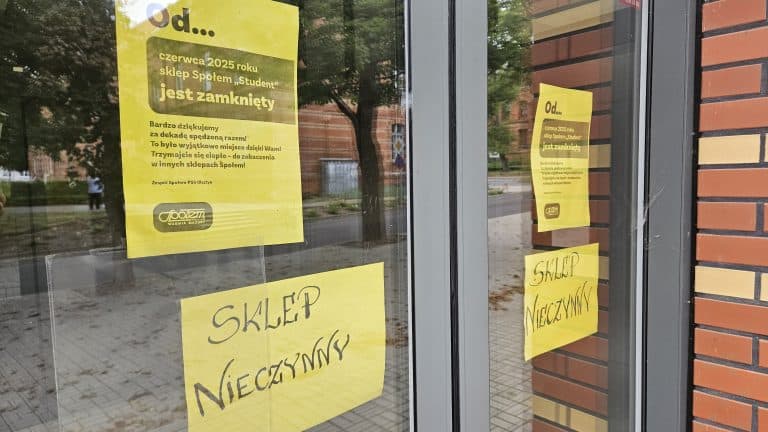 Od...
czerwca 2025 roku
sklep Społem „Student”
jest zamknięty
Bardzo dziękujemy
za dekadę spędzoną razem!
To było wyjątkowe miejsce dzięki Wam!
Trzymajcie się ciepło – do zobaczenia
w innych sklepach Społem!
Zespół Społem PSS Olsztyn
Społem
WARMIA MAZURY
SKLEP
NIECZYNNY
Od...
czerwca 2025 roku
sklep Społem „Student”
jest zamknięty
SKLEP
NIECZYNNY